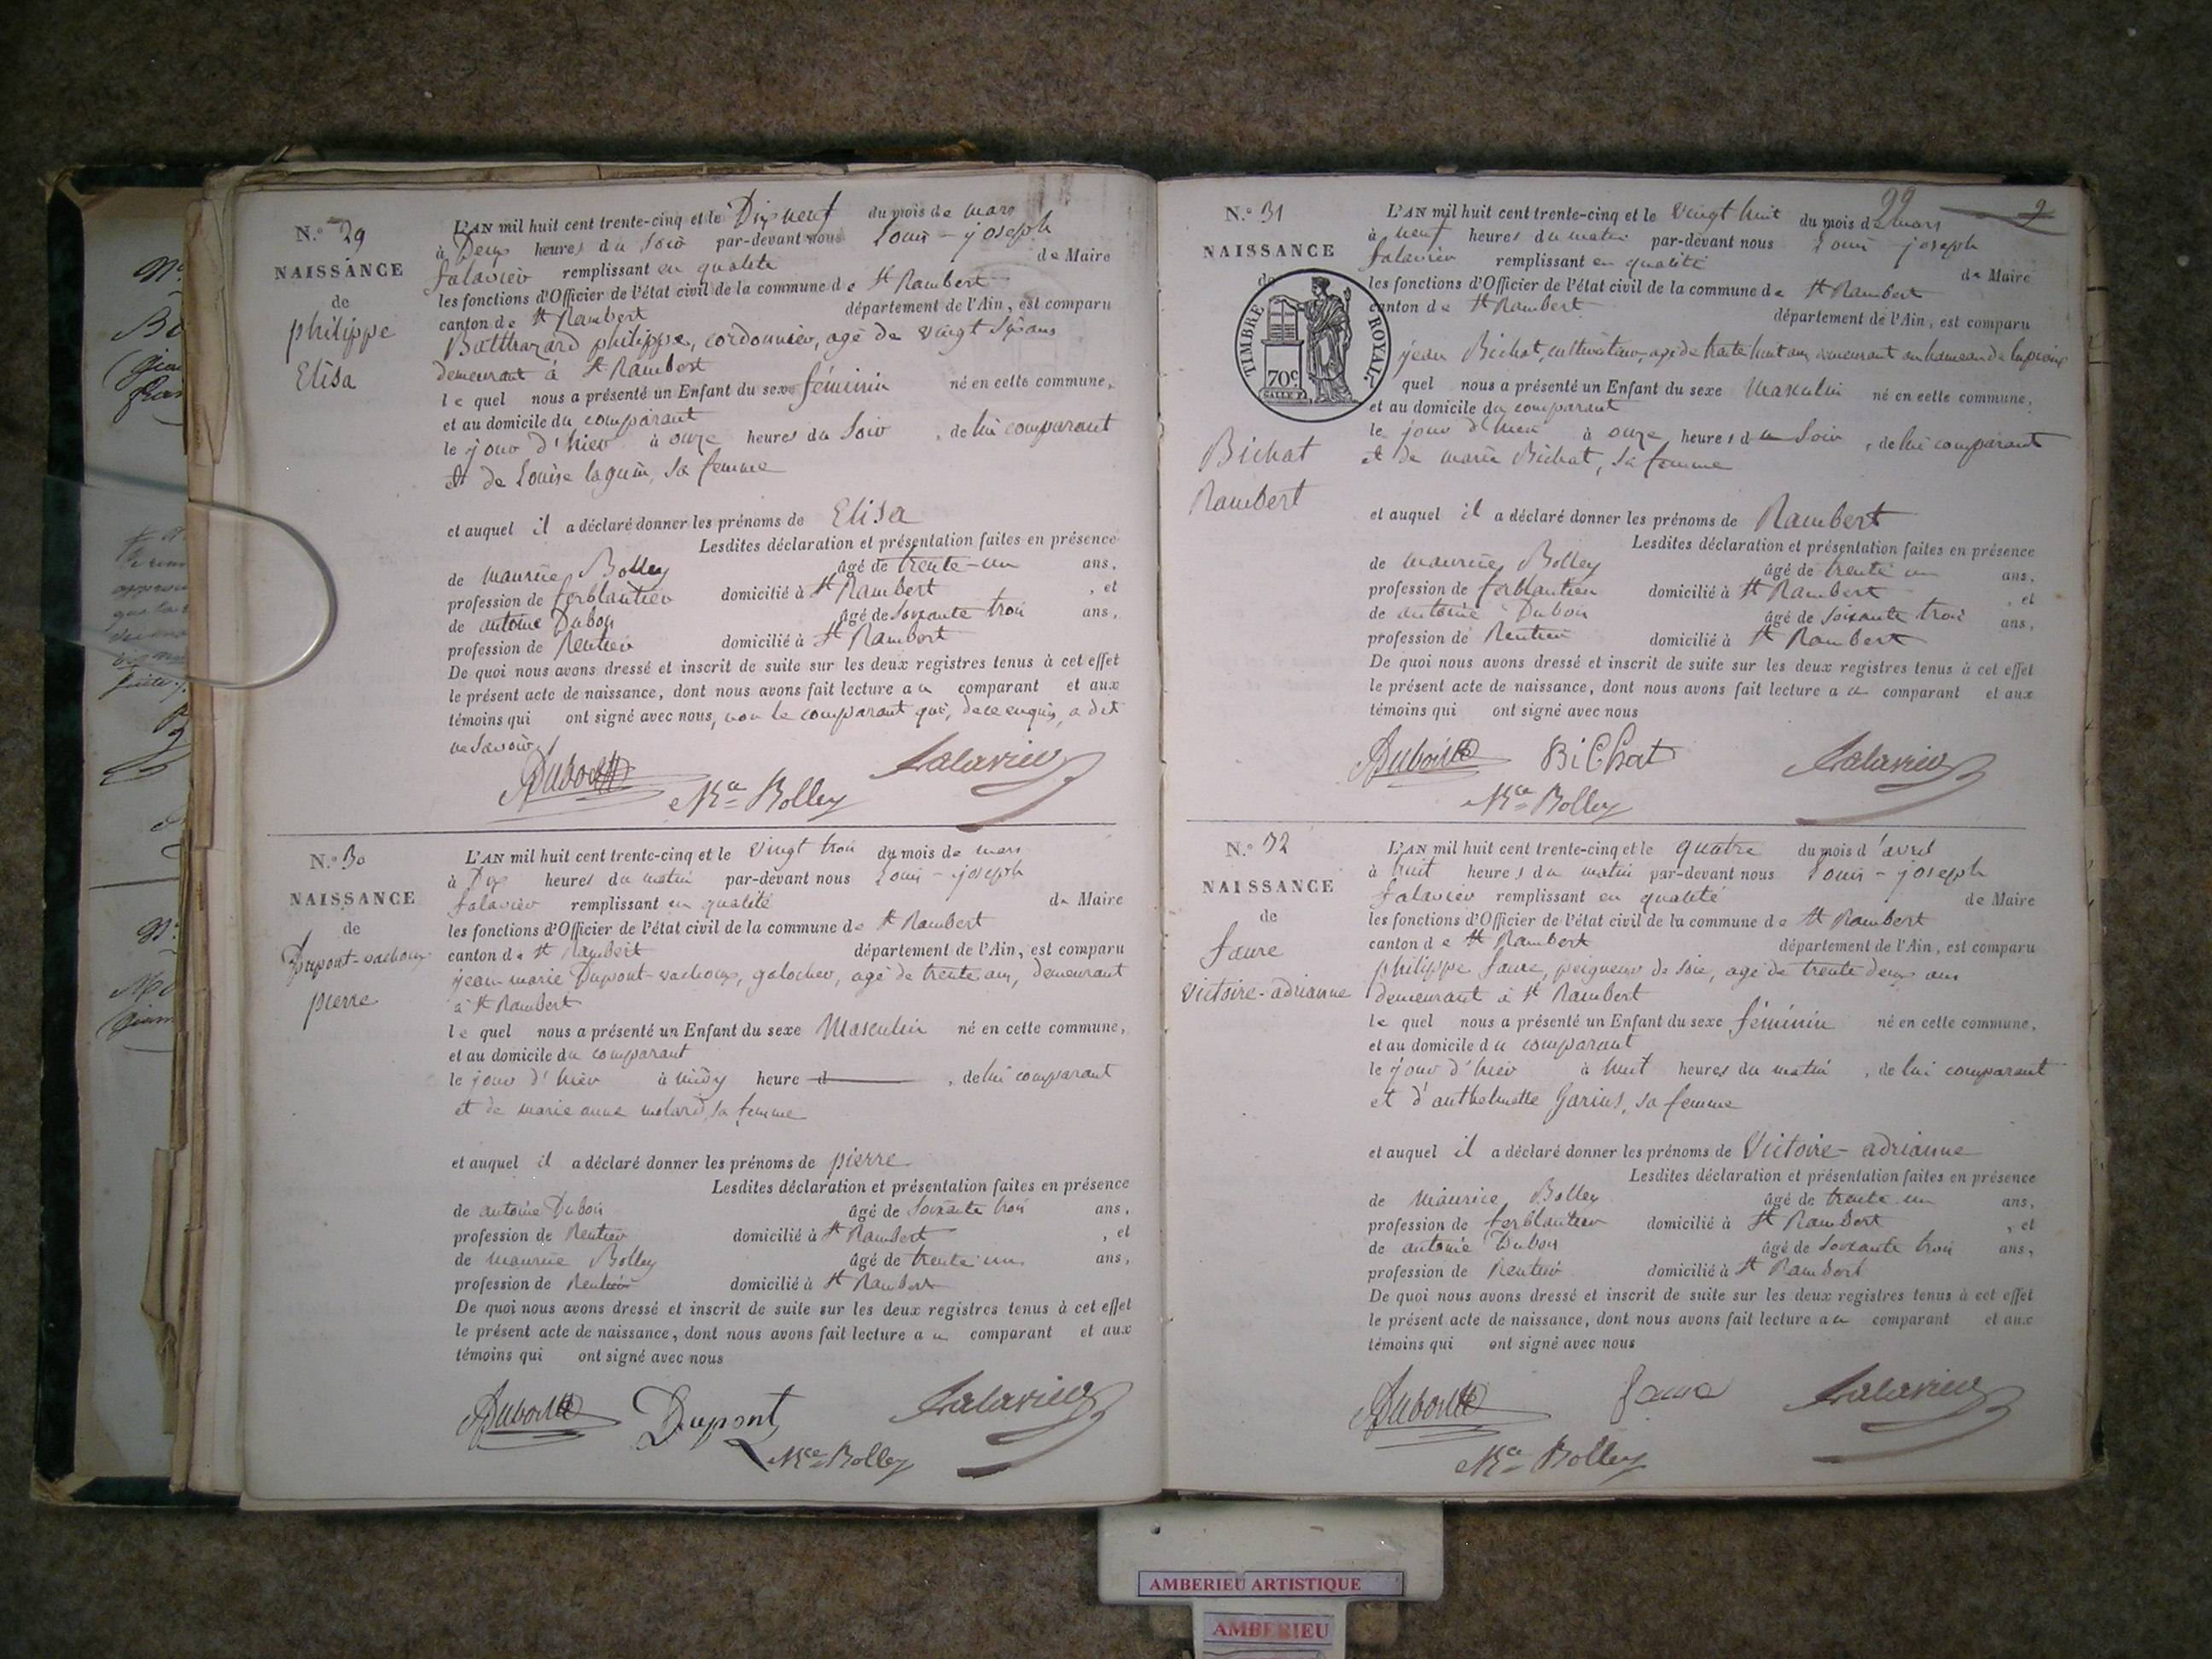 N.º 29
NAISSANCE
de
philippe
Elisa
L'AN mil huit cent trente-cinq et le Dix neuf du mois de mars
à Deux heures du soir par-devant nous Louis - joseph
falavier remplissant en qualité de Maire
les fonctions d'Officier de l'état civil de la commune de St Rambert
canton de St Rambert département de l'Ain, est comparu
Balthazard philippe, cordonnier, agé de vingt six ans
demeurant à St Rambert
le quel nous a présenté un Enfant du sexe féminin né en cette commune,
et au domicile du comparant
le jour d'hier à onze heures du soir, de lui comparant
et de Louise laguin, sa femme
et auquel il a déclaré donner les prénoms de Elisa
Lesdites déclaration et présentation faites en présence
de maurice Bolley âgé de trente-un ans,
profession de ferblantier domicilié à St Rambert, et
de antoine Dubois âgé de soixante trois ans,
profession de Rentier domicilié à St Rambert
De quoi nous avons dressé et inscrit de suite sur les deux registres tenus à cet effet
le présent acte de naissance, dont nous avons fait lecture au comparant et aux
témoins qui ont signé avec nous, non le comparant qui, de ce enquis, a dit
ne savoir
Dubois Mce Bolley falavier
N.º 30
NAISSANCE
de
Dupont-vachoux
pierre
L'AN mil huit cent trente-cinq et le vingt trois du mois de mars
à Dix heures du matin par-devant nous Louis - joseph
falavier remplissant en qualité de Maire
les fonctions d'Officier de l'état civil de la commune de St Rambert
canton de St Rambert département de l'Ain, est comparu
jean-marie Dupont-vachoux, galocher, agé de trente ans, demeurant
à St Rambert
le quel nous a présenté un Enfant du sexe Masculin né en cette commune,
et au domicile du comparant
le jour d'hier à midy heure d, de lui comparant
et de marie anne molard, sa femme
et auquel il a déclaré donner les prénoms de pierre
Lesdites déclaration et présentation faites en présence
de antoine Dubois âgé de soixante trois ans,
profession de Rentier domicilié à St Rambert, et
de maurice Bolley âgé de trente un ans,
profession de Rentier domicilié à St Rambert
De quoi nous avons dressé et inscrit de suite sur les deux registres tenus à cet effet
le présent acte de naissance, dont nous avons fait lecture au comparant et aux
témoins qui ont signé avec nous
Dubois Dupont falavier
Mce Bolley
22
N.º 31
NAISSANCE
de
Bichat
Rambert
TIMBRE ROYAL
70c
L'AN mil huit cent trente-cinq et le vingt huit du mois de mars
à neuf heures du matin par-devant nous Louis joseph
falavier remplissant en qualité de Maire
les fonctions d'Officier de l'état civil de la commune de St Rambert
canton de St Rambert département de l'Ain, est comparu
jean Bichat, cultivateur, agé de trente huit ans, demeurant au hameau de
quel nous a présenté un Enfant du sexe Masculin né en cette commune,
et au domicile du comparant
le jour d'hier à onze heures du soir, de lui comparant
et de marie Bichat, sa femme
et auquel il a déclaré donner les prénoms de Rambert
Lesdites déclaration et présentation faites en présence
de maurice Bolley âgé de trente un ans,
profession de ferblantier domicilié à St Rambert, et
de antoine Dubois âgé de soixante trois ans,
profession de Rentier domicilié à St Rambert
De quoi nous avons dressé et inscrit de suite sur les deux registres tenus à cet effet
le présent acte de naissance, dont nous avons fait lecture au comparant et aux
témoins qui ont signé avec nous
Dubois BiChat falavier
Mce Bolley
N.º 32
NAISSANCE
de
faure
victoire-adrianne
L'AN mil huit cent trente-cinq et le quatre du mois d'avril
à huit heures du matin par-devant nous Louis - joseph
falavier remplissant en qualité de Maire
les fonctions d'Officier de l'état civil de la commune de St Rambert
canton de St Rambert département de l'Ain, est comparu
philippe faure, peigneur de soie, agé de trente deux ans
demeurant à St Rambert
le quel nous a présenté un Enfant du sexe féminin né en cette commune,
et au domicile du comparant
le jour d'hier à huit heures du matin, de lui comparant
et d'anthelmette Garins, sa femme
et auquel il a déclaré donner les prénoms de Victoire-adrianne
Lesdites déclaration et présentation faites en présence
de maurice Bolley âgé de trente un ans,
profession de ferblantier domicilié à St Rambert, et
de antoine Dubois âgé de soixante trois ans,
profession de Rentier domicilié à St Rambert
De quoi nous avons dressé et inscrit de suite sur les deux registres tenus à cet effet
le présent acte de naissance, dont nous avons fait lecture au comparant et aux
témoins qui ont signé avec nous
Dubois faure falavier
Mce Bolley
AMBERIEU ARTISTIQUE
AMBERIEU